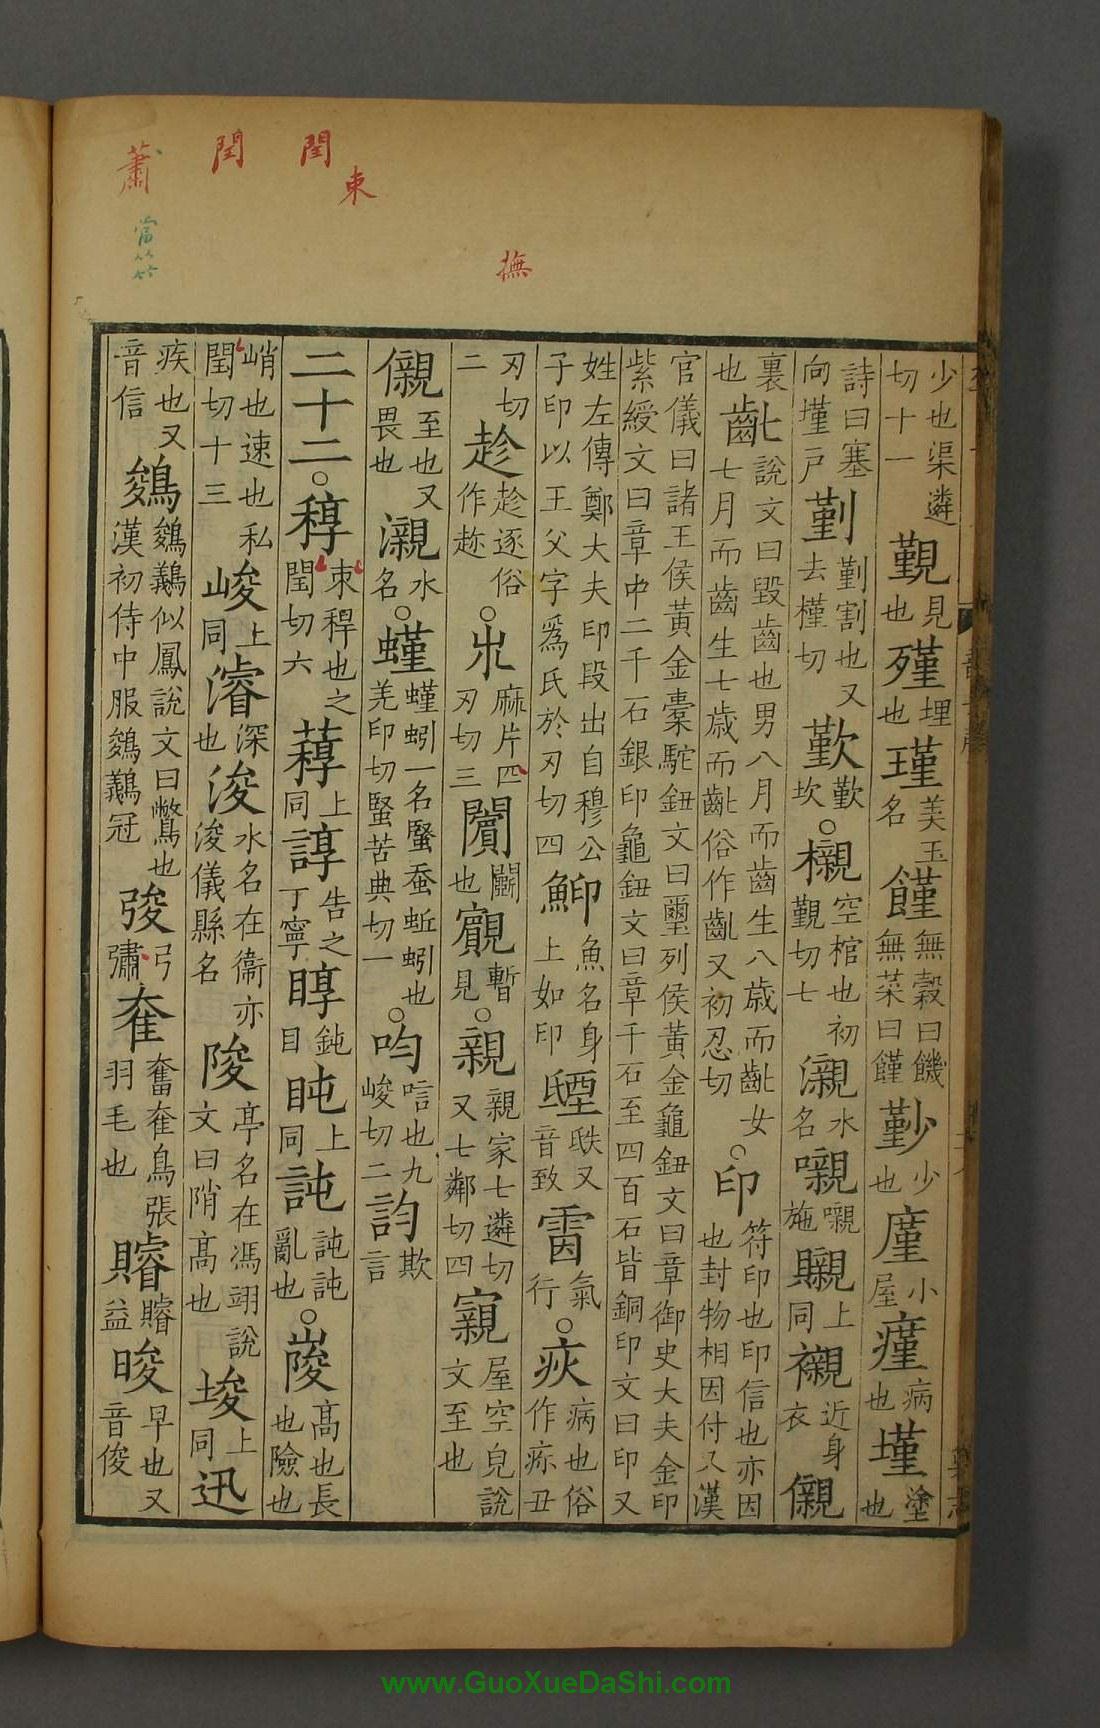 少也渠遴切十一覲見也殣埋也瑾美玉名饉無穀曰饑無菜曰饉㔤少也廑小屋㾙病也墐塗也
詩曰塞向墐戶㔤㔤割也又去槿切歏歏坎○櫬空棺也初覲切七瀙水名嚫嚫施䞋上同襯近身衣儭
裏也齔說文曰毀齒也男八月而齒生八歲而齔女七月而齒生七歲而齔俗作齓又初忍切○印符印也印信也亦因也封物相因付又漢
官儀曰諸王侯黃金橐駝鈕文曰璽列侯黃金龜鈕文曰章御史大夫金印紫綬文曰章中二千石銀印龜鈕文曰章千石至四百石皆銅印文曰印又
姓左傳鄭大夫印段出自穆公子印以王父字爲氏於刃切四䲟魚名身上如印𡍅䟡又音致䨙氣行○疢病也俗作疹丑
刃切二趁趁逐俗作趂○𣎳麻片匹刃切三闠鬭也覿暫見○親親家七遴切又七鄰切四寴屋空皃說文至也
儭至也又畏也瀙水名○螼螼蚓一名蜸蚕蚯蚓也羌印切蜸苦典切一○呁㖧也九峻切二訋欺言
二十二○稕朿稈也之閏切六䔡上同諄告之丁寧䀴鈍目盹上同訰訰訰亂也○陖高也長也險也
峭也速也私閏切十三峻上同濬深也浚水名在衞亦浚儀縣名陵亭名在馮翊說文曰陗高也埈上同迅
疾也又音信鵔鵔鸃似鳳說文曰鷩也漢初侍中服鵔鸃冠㝦弓彇奞奮奞鳥張羽毛也䝮䝮益晙早也又音俊
閏
朿
閏
蕭
當从竹
撫
www.GuoXueDaShi.com